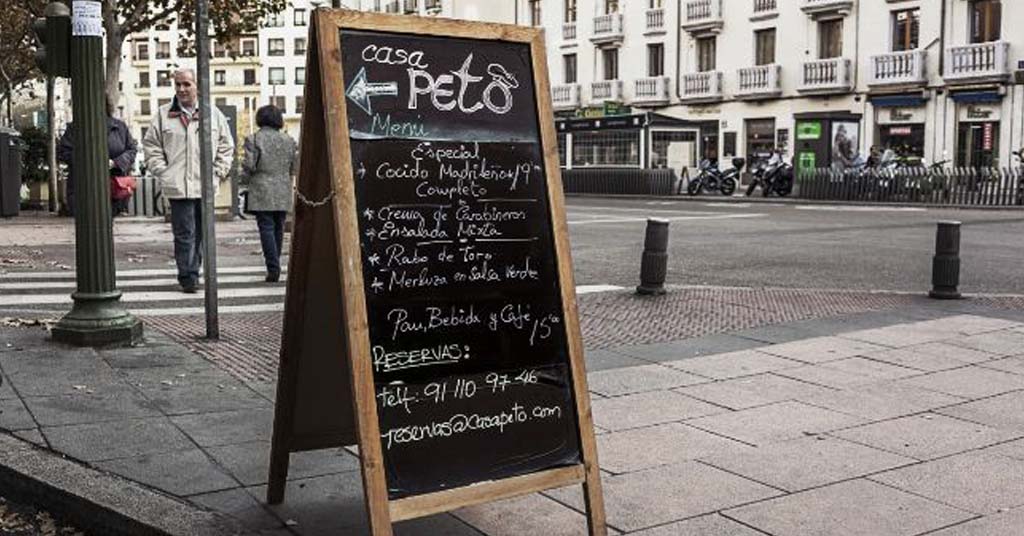 casa
PETO
Menú
Especial
* Cocido Madrileño *19'
Completo
* Crema de Carabineros
* Ensalada Mixta
* Rabo de Toro
* Merluza en Salsa Verde
Pan, Bebida y Café
15'00
RESERVAS:
telf: 91 110 97-46
reservas@casapeto.com